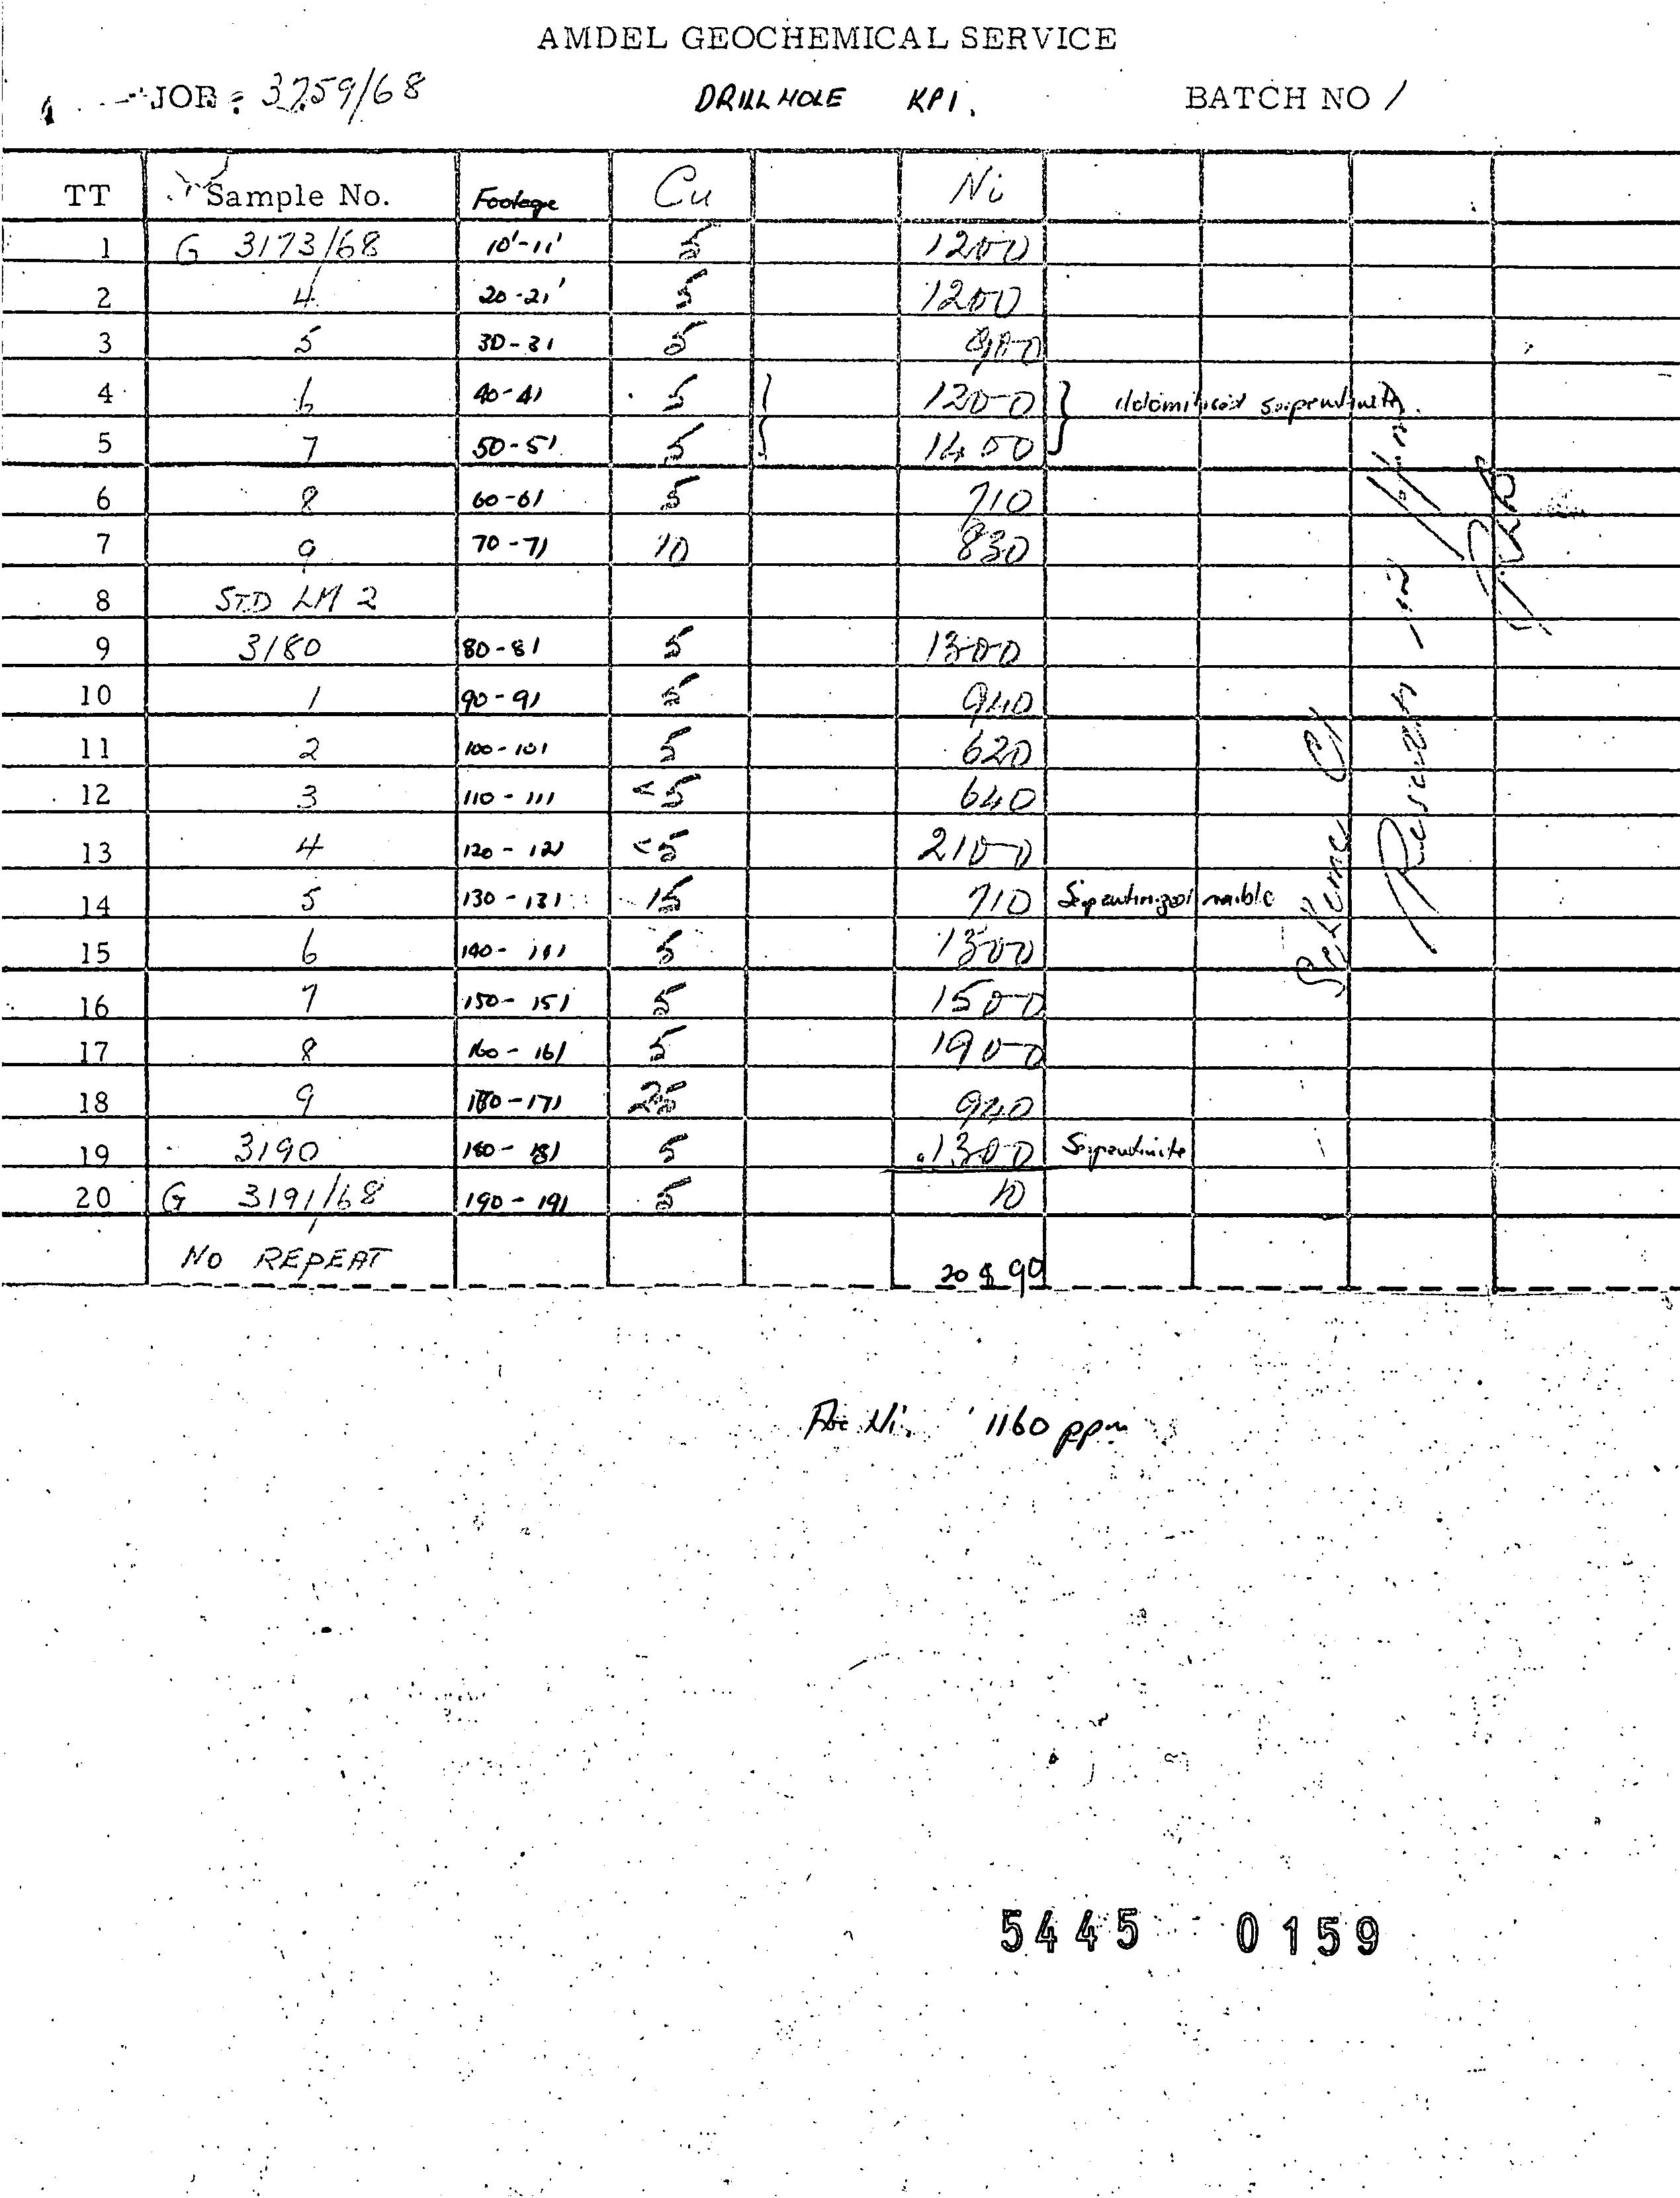 AMDEL GEOCHEMICAL SERVICE
JOB: 3759/68 DRILL HOLE KP1. BATCH NO 1
TT Sample No. Footage Cu Ni
1 G 3173/68 10'-11' 5 1200
2 4 20-21' 5 1200
3 5 30-31 5 980
4 6 40-41 5 1200 dolomitised serpentinite.
5 7 50-51 5 1400
6 8 60-61 5 710
7 9 70-71 10 830
8 STD LM 2
9 3180 80-81 5 1300
10 1 90-91 5 940
11 2 100-101 5 620
12 3 110-111 <5 640
13 4 120-121 <5 2100
14 5 130-131 15 710 Serpentinized marble
15 6 140-141 5 1300
16 7 150-151 5 1500
17 8 160-161 5 1900
18 9 170-171 25 940
19 3190 180-181 5 1300 Serpentinite
20 G 3191/68 190-191 5 10
NO REPEAT 20 & 90
Scheme C1
Results in
Ni. 1160 ppm
5445 0159